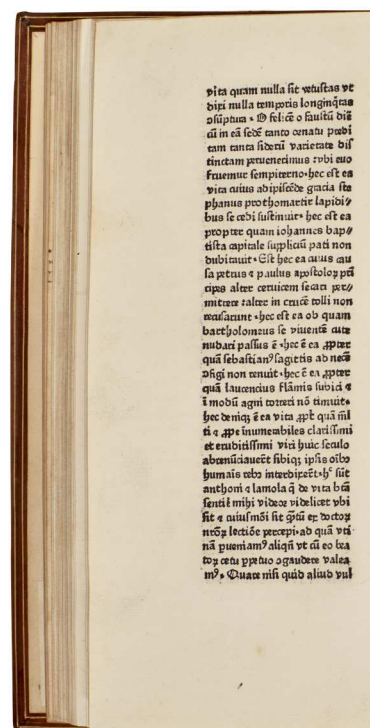 vita quam nulla sit vetustas vt
dixi nulla temporis longinq̃tas
ɔsũptura · O felicẽ o faustũ diẽ
cũ in eã sedẽ tanto ornatu predi
tam tanta siderũ varietate dis
tinctam peruenerimus ꝛvbi euo
fruemur sempiterno · hec est ea
vita cuius adipiscẽde gracia ste
phanus prothomartir lapidi⸗
bus se cedi sustinuit · hec est ea
propter quam iohannes bap⸗
tista capitale suppliciũ pati non
dubitauit · Est hec ea cuius cau
sa petrus ⁊ paulus apostoloꝝ prĩ
cipes alter ceruicem secari per⸗
mittere ꝛalter in crucẽ tolli non
recusarunt · hec est ea ob quam
bartholomeus se viuentẽ cute
nudari passus ẽ · hec ẽ ea ꝓpter
quã sebastianꝰ sagittis ad necẽ
ɔfigi non renuit · hec ẽ ea ꝓpter
quã laurencius flãmis subici ⁊
ĩ modũ agni torreri nõ timuit ·
hec deniqꝫ ẽ ea vita ꝓpt̃ quã ml̃
ti ⁊ ꝓpe innumerabiles clarissimi
et eruditissimi viri huic seculo
abrenũciauerũt sibiqꝫ ipsis oĩbꝰ
humaĩs rebꝰ interdixerũt · hᷤ sũt
anthoni ⁊ lamola q̃ de vita btã
sentiẽ mihi videor videlicet vbi
sit ⁊ cuiusmõi sit qp̃tũ ex doctoꝝ
nr̃oꝝ lectiõe percepi · ad quã vti
nã ꝑueniamꝰ aliqñ vt cũ eo bea
toꝝ cetu ꝑpetuo ɔgaudere valea
mꝰ · Quare nisi quid aliud vul